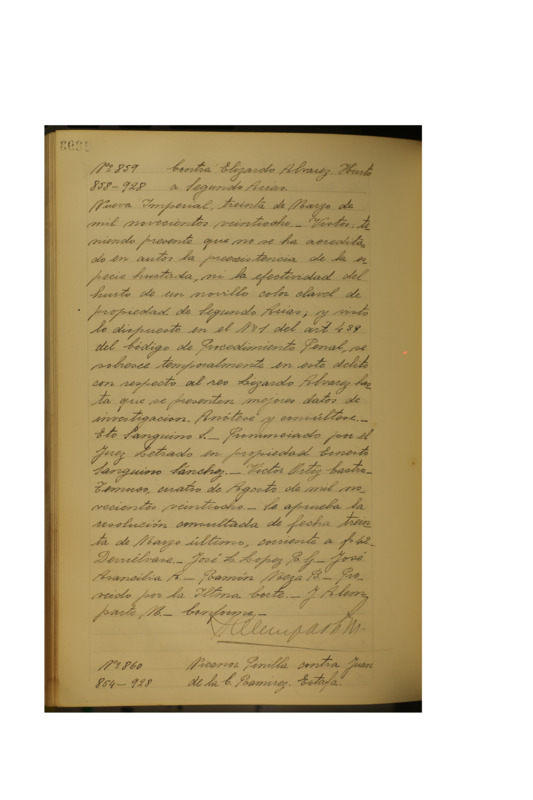 Nº 859 Contra Elizardo Alvarez. Hurto
858-928 a Segundo Arias.
Nueva Imperial, treinta de Marzo de
mil novecientos veintiocho._ Vistos: te
niendo presente que no se ha acredita
do en autos la preexistencia de la es
pecie hurtada, ni la efectividad del
hurto de un novillo color clavel de
propiedad de Segundo Arias, y visto
lo dispuesto en el Nº1 del art 438
del Código de Procedimiento Penal, se
sobresee temporalmente en este delito
con respecto al reo Lizardo Alvarez has
ta que se presenten mejores datos de
investigacion. Anótese y consúltese._
Eto Sanguino S._ Pronunciado por el
Juez Letrado en propiedad Ernesto
Sanguino Sánchez._ Victor Ortiz Castro_
Temuco, cuatro de Agosto de mil no_
vecientos veintiocho._ Se aprueba la
resolución consultada de fecha trein
ta de Marzo último, corriente a f. 42_
Devuélvase._ José L. Lopez R. G._ José
Arancibia A._ Ramón Meza R._ Pro_
veido por la Iltma Corte._ J. Alem
parte M._ Conforme._
J Alemparte M.
Nº 860 Nicanor Pinilla contra Juan
854-928 de la C. Ramirez. Estafa.